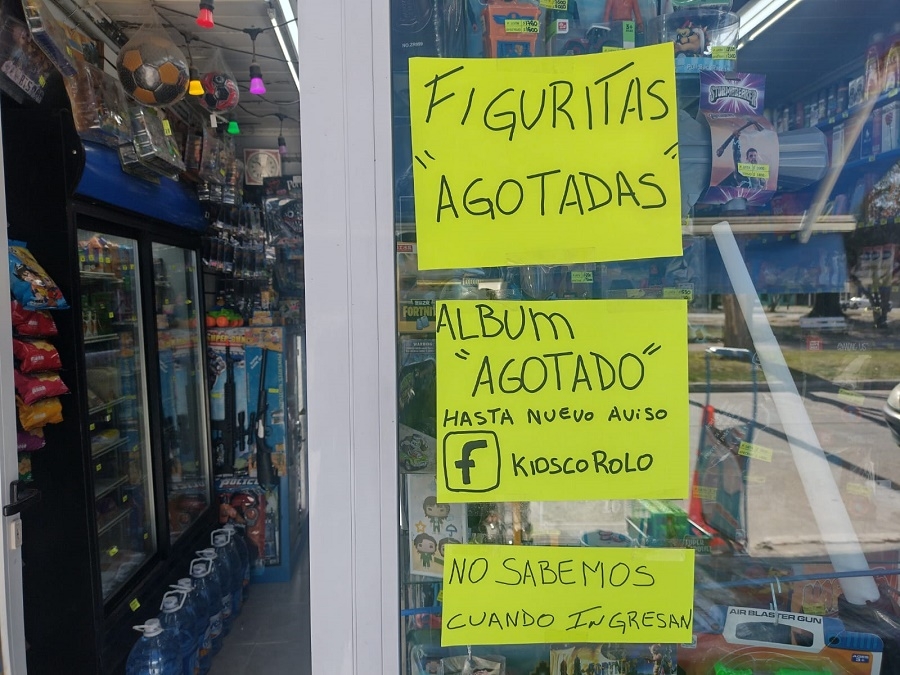 FIGURITAS
"AGOTADAS"
ALBUM
"AGOTADO"
HASTA NUEVO AVISO
f KIOSCOROLO
NO SABEMOS
CUANDO INGRESAN
FORTNITE
AIR BLASTER GUN